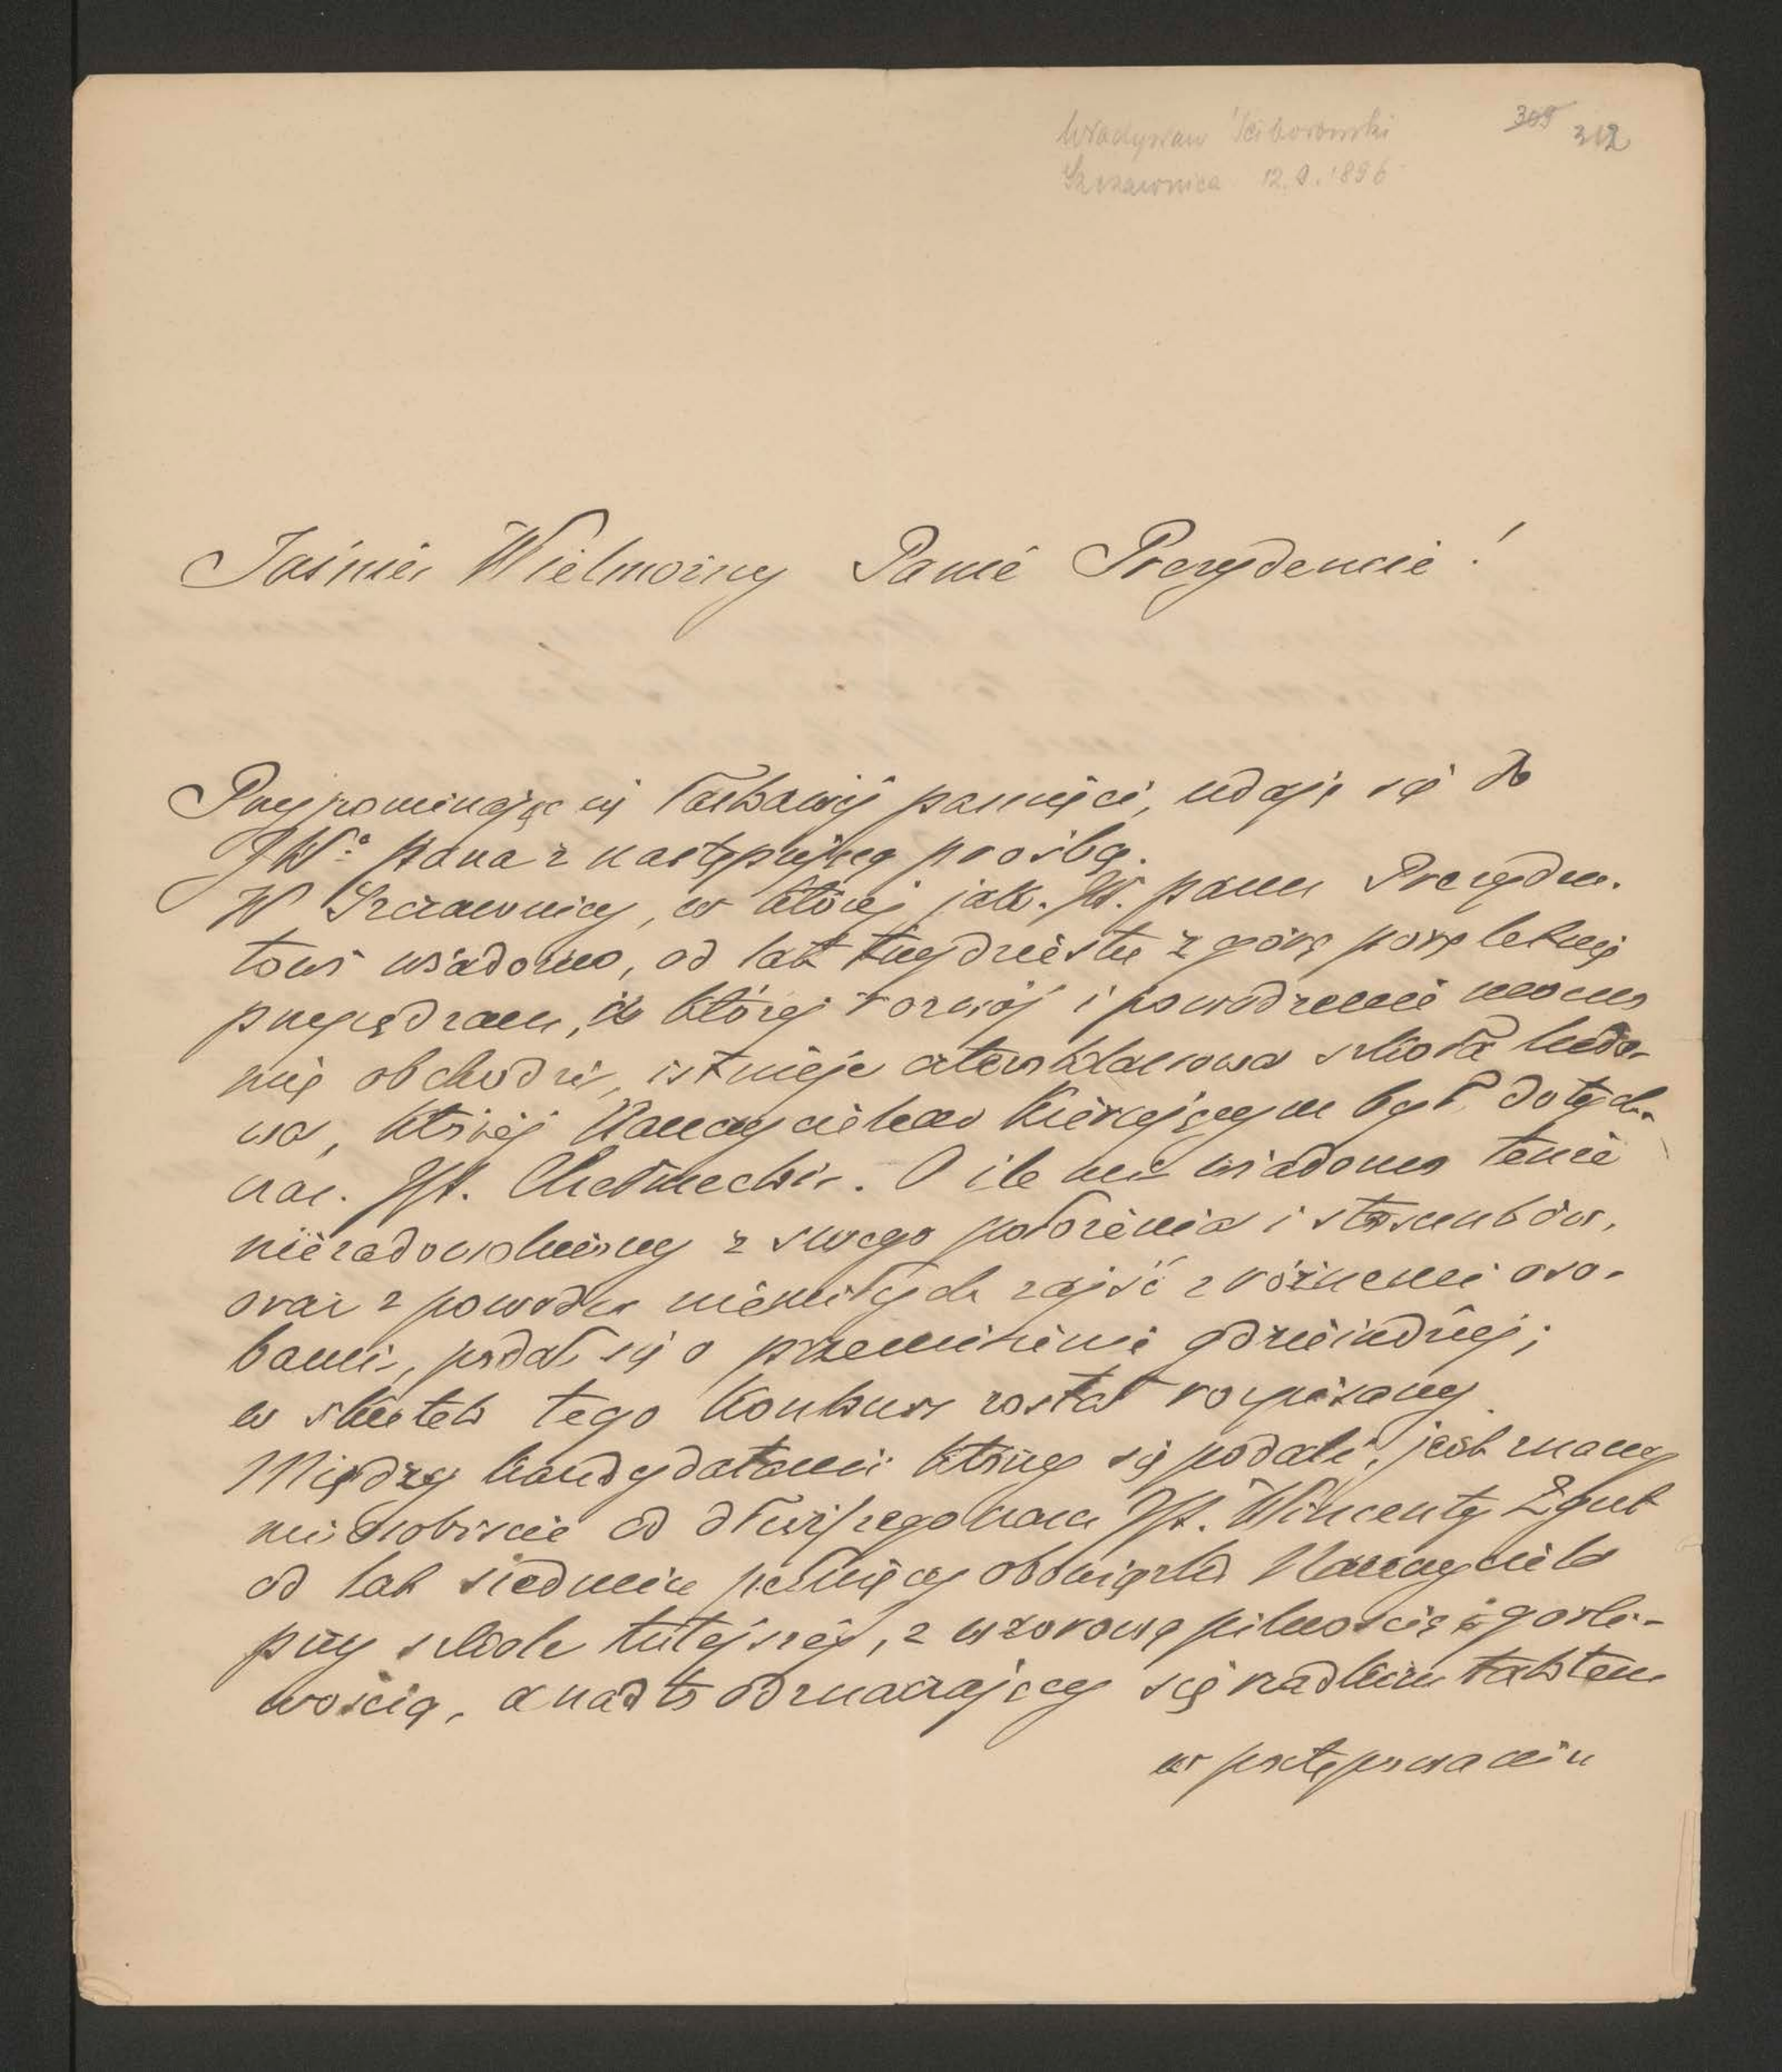 Władysław Ściborowski
Szczawnica 12.9.1896
309 312
Jaśnie Wielmożny Panie Prezydencie!
Przypominając się łaskawej pamięci, udaję się do
JWº pana z następującą prośbą.
W Szczawnicy, w której jak JW. panu Prezyden-
towi wiadomo, od lat trzydziestu z górą porę letnią
przepędzam, i której rozwój i powodzenie mocno
mię obchodzi, istnieje czteroklasowa szkoła ludo-
wa, której Nauczycielem Kierującym był dotych-
czas JP. Chełmecki. O ile mi wiadomo tenże
niezadowolniony z swego położenia i stosunków,
oraz z powodu niemiłych zajść z różnemi oso-
bami, podał się o przeniesienie gdzieindziej;
w skutek tego Konkurs został rozpisany.
Między kandydatami którzy się podali, jest znany
mi osobiscie od dłuższego czasu JP. Wincenty Zgut
od lat siedmiu pełniący obowiązki Nauczyciela
przy szkole tutejszej, z wzorową pilnością i gorli-
wością, a nadto odznaczający się rzadkim taktem
w postępowaniu